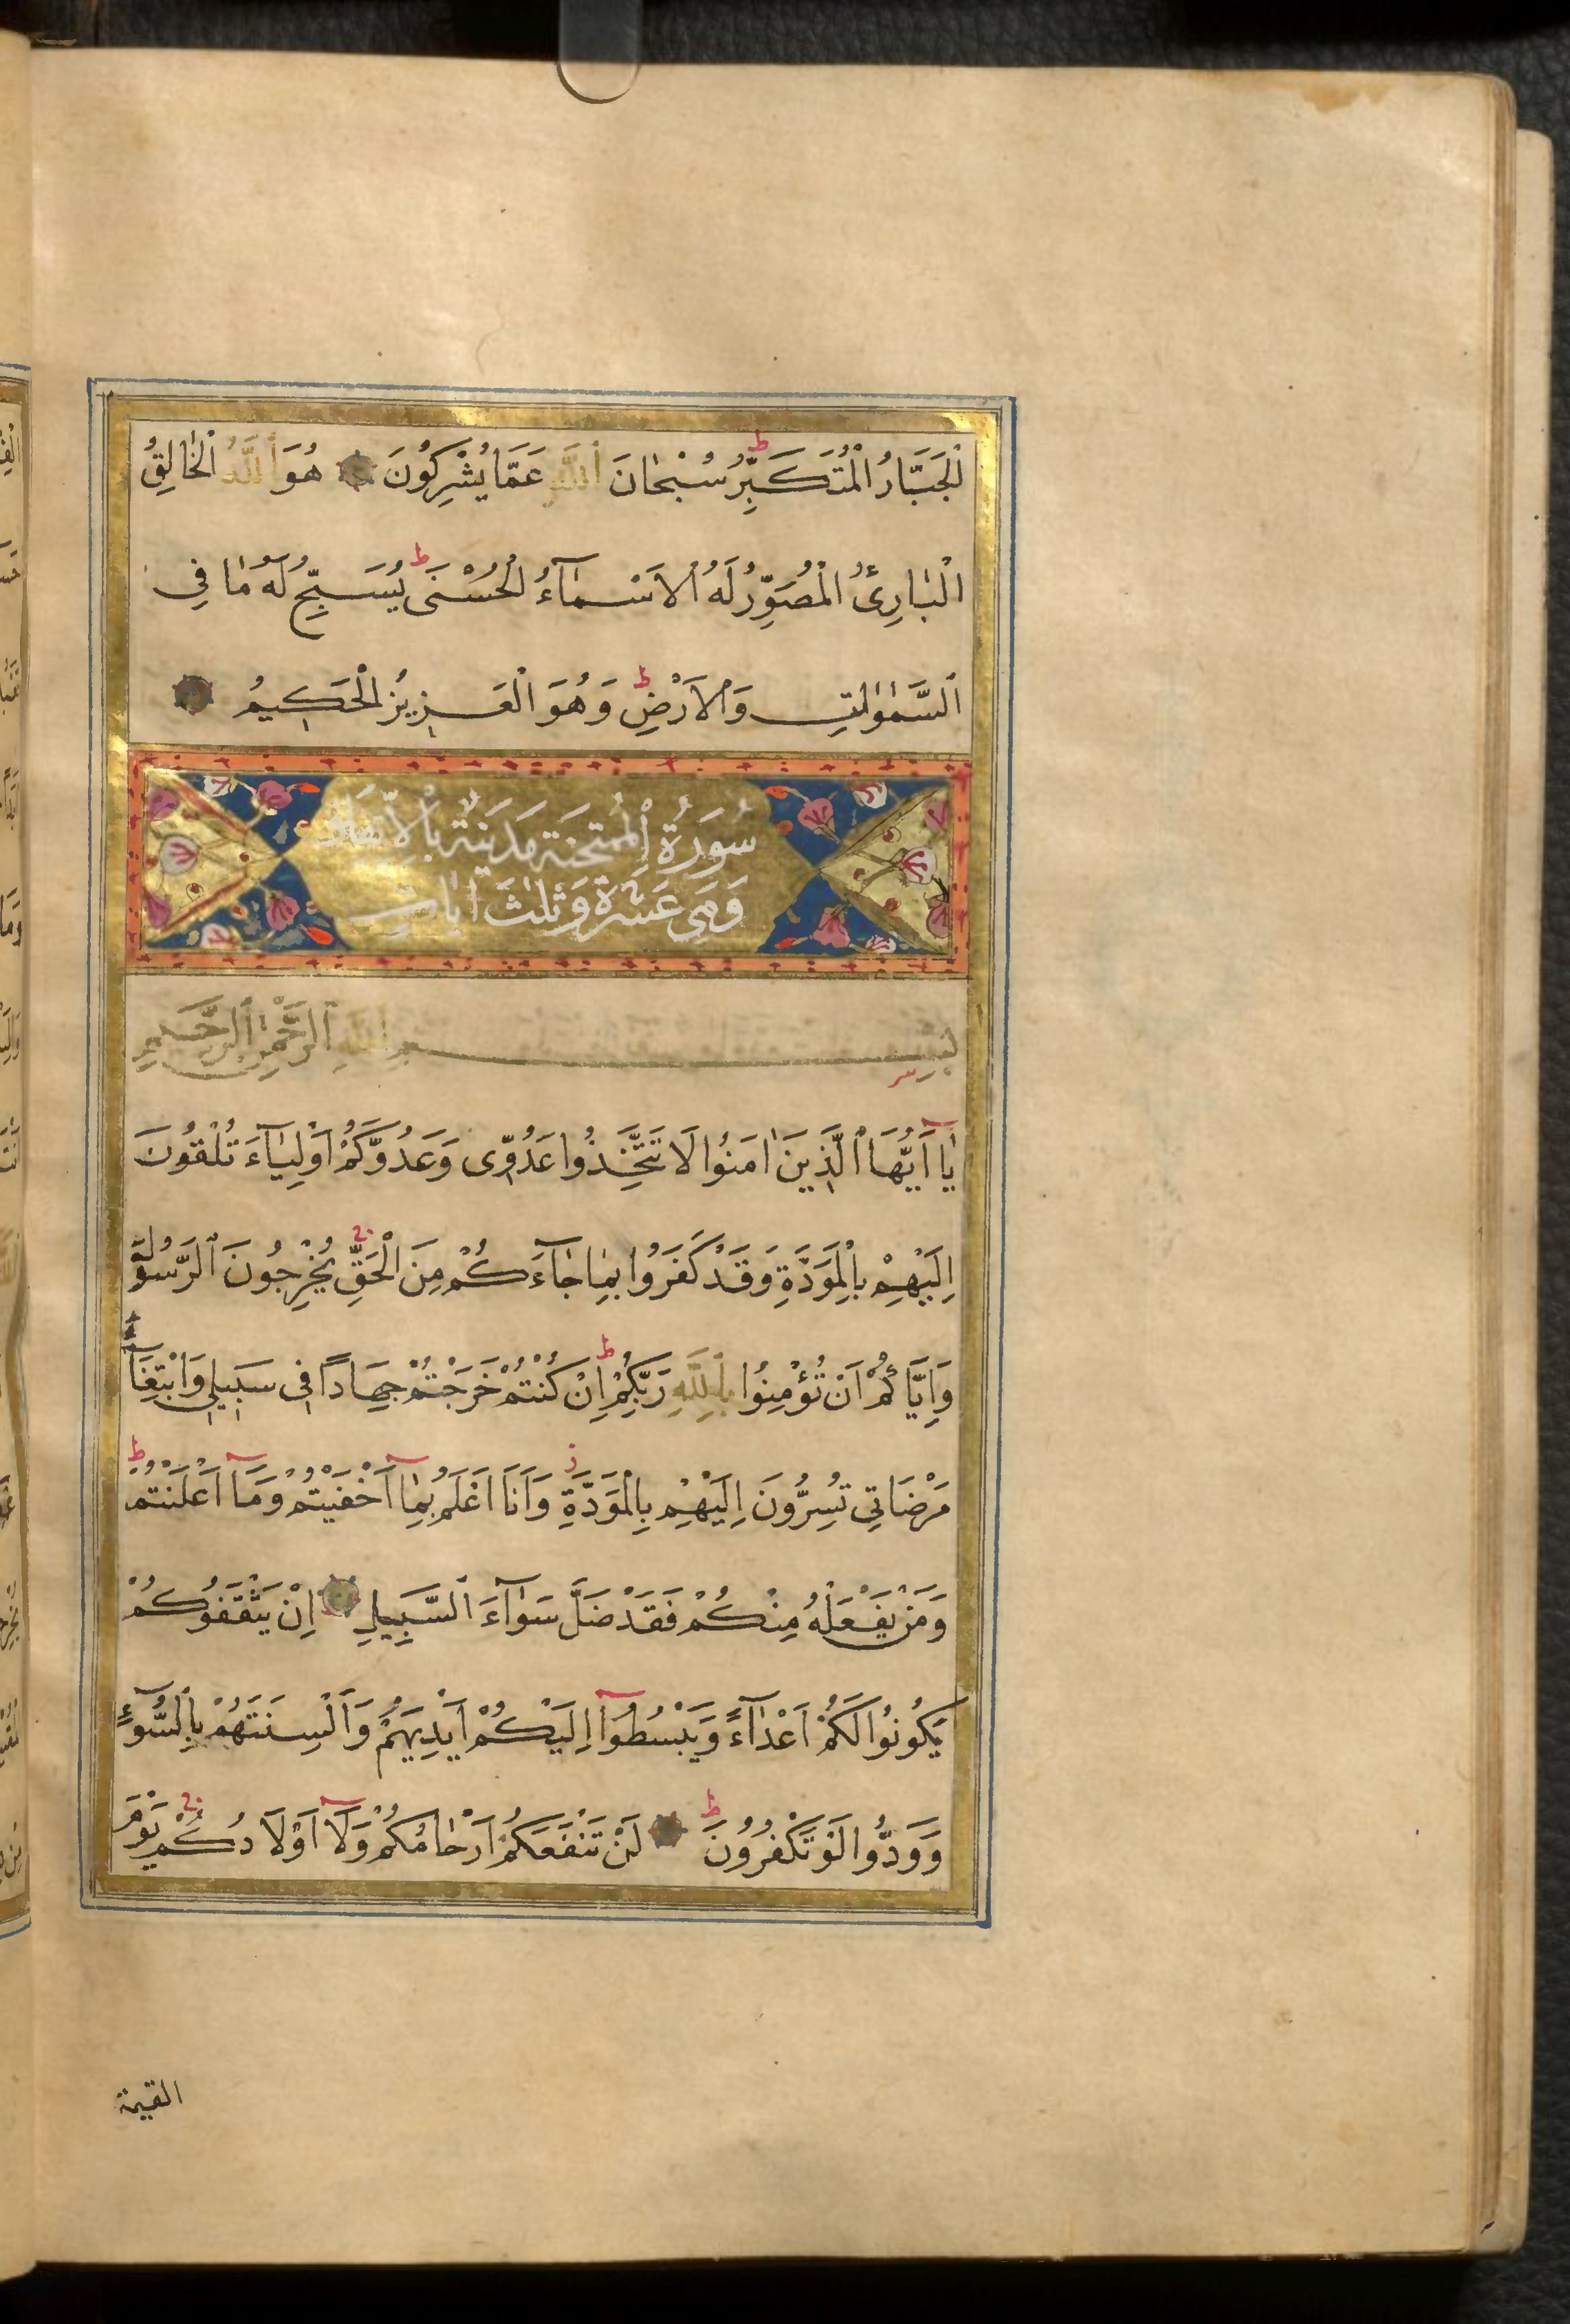 اَلْجَبَّارُ الْمُتَكَبِّرُ ط سُبْحَانَ اللّٰهِ عَمَّا يُشْرِكُونَ هُوَ اللّٰهُ الْخَالِقُ
الْبَارِئُ الْمُصَوِّرُ لَهُ الْاَسْمَآءُ الْحُسْنٰى ط يُسَبِّحُ لَهُ مَا فِى
السَّمٰوٰاتِ وَالْاَرْضِ ط وَهُوَ الْعَزِيزُ الْحَكِيمُ
سُورَةُ الْمُمْتَحِنَة مَدَنِيَّة بِالْاِتِّفَاق
وَهِىَ عَشْرَة وَثَلٰثَ اٰيَات
بِسْمِ اللّٰهِ الرَّحْمٰنِ الرَّحِيمِ
يَا اَيُّهَا الَّذِينَ اٰمَنُوا لَا تَتَّخِذُوا عَدُوِّى وَعَدُوَّكُمْ اَوْلِيَآءَ تُلْقُونَ
اِلَيْهِمْ بِالْمَوَدَّةِ وَقَدْ كَفَرُوا بِمَا جَآءَكُمْ مِنَ الْحَقِّ يُخْرِجُونَ الرَّسُولَ
وَاِيَّاكُمْ اَنْ تُؤْمِنُوا بِاللّٰهِ رَبِّكُمْ ط اِنْ كُنْتُمْ خَرَجْتُمْ جِهَادًا فِى سَبِيلِى وَابْتِغَآءَ
مَرْضَاتِى تُسِرُّونَ اِلَيْهِمْ بِالْمَوَدَّةِ ز وَاَنَا اَعْلَمُ بِمَآ اَخْفَيْتُمْ وَمَآ اَعْلَنْتُمْ ط
وَمَنْ يَفْعَلْهُ مِنْكُمْ فَقَدْ ضَلَّ سَوَآءَ السَّبِيلِ اِنْ يَثْقَفُوكُمْ
يَكُونُوا لَكُمْ اَعْدَآءً وَيَبْسُطُوآ اِلَيْكُمْ اَيْدِيَهُمْ وَاَلْسِنَتَهُمْ بِالسُّوٓءِ
وَوَدُّوا لَوْ تَكْفُرُونَ ط لَنْ تَنْفَعَكُمْ اَرْحَامُكُمْ وَلَآ اَوْلَادُكُمْ يَوْمَ
القيمة